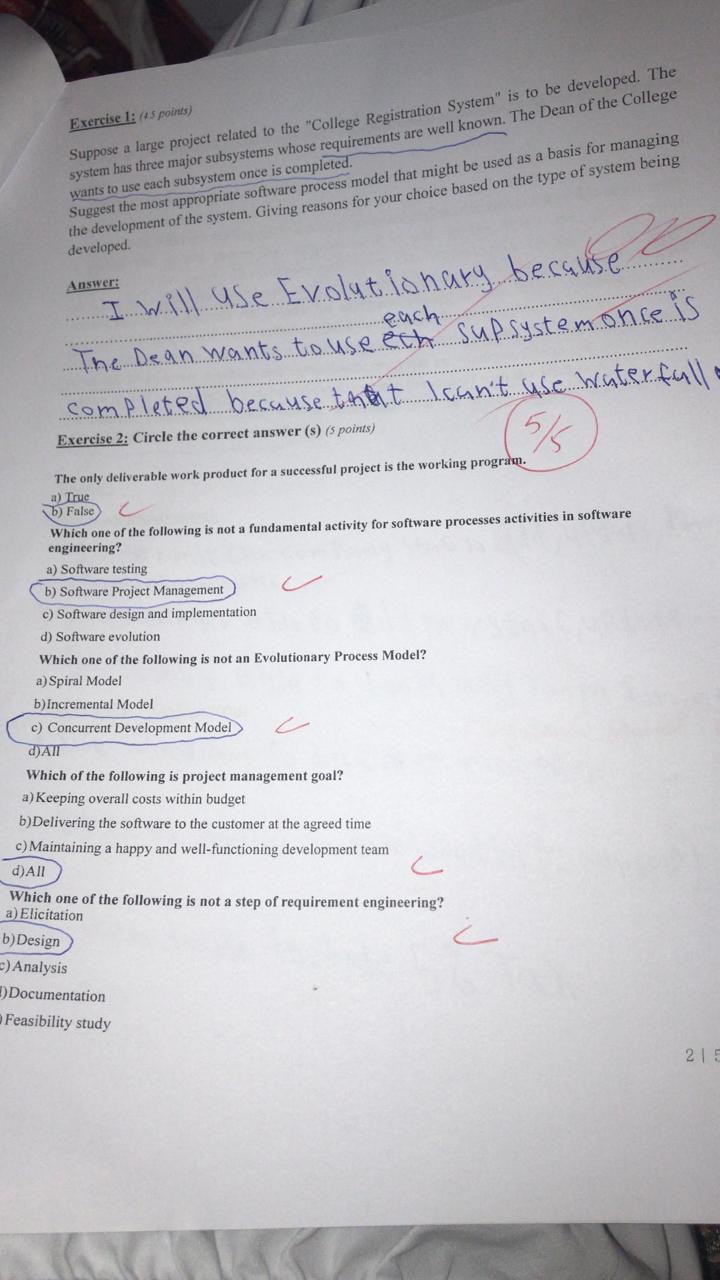 Exercise 1: (4.5 points)
Suppose a large project related to the "College Registration System" is to be developed. The
system has three major subsystems whose requirements are well known. The Dean of the College
wants to use each subsystem once is completed.
Suggest the most appropriate software process model that might be used as a basis for managing
the development of the system. Giving reasons for your choice based on the type of system being
developed.
Answer:
I will use Evolutionary because
each
The Dean wants to use ech supsystem once is
completed because that I can't use waterfall
Exercise 2: Circle the correct answer (s) (5 points)
5/5
The only deliverable work product for a successful project is the working program.
a) True
b) False
Which one of the following is not a fundamental activity for software processes activities in software
engineering?
a) Software testing
b) Software Project Management
c) Software design and implementation
d) Software evolution
Which one of the following is not an Evolutionary Process Model?
a) Spiral Model
b)Incremental Model
c) Concurrent Development Model
d)All
Which of the following is project management goal?
a) Keeping overall costs within budget
b)Delivering the software to the customer at the agreed time
c) Maintaining a happy and well-functioning development team
d)All
Which one of the following is not a step of requirement engineering?
a) Elicitation
b)Design
c) Analysis
)Documentation
)Feasibility study
2 | 5